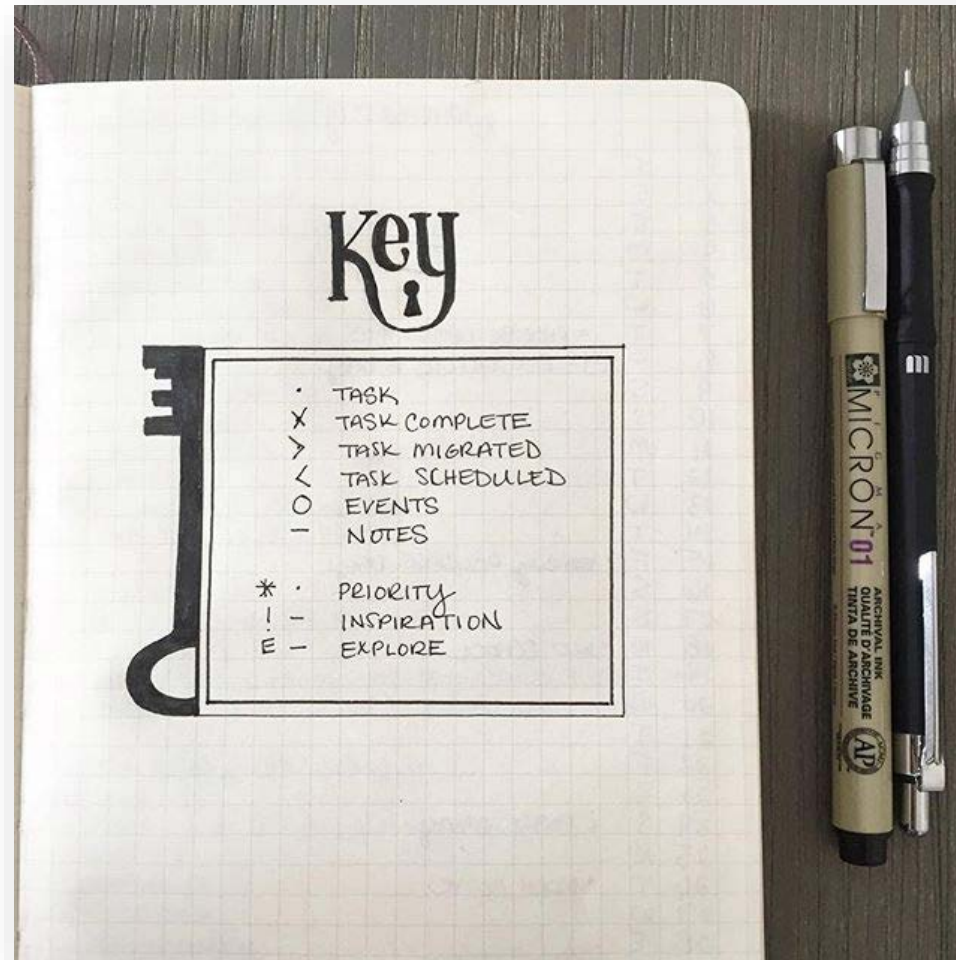 Key
· TASK
X TASK COMPLETE
> TASK MIGRATED
< TASK SCHEDULED
O EVENTS
– NOTES
* · PRIORITY
! – INSPIRATION
E – EXPLORE
PIGMA
MICRON™ 01
ARCHIVAL INK
QUALITÉ D'ARCHIVAGE
TINTA DE ARCHIVE
AP
m